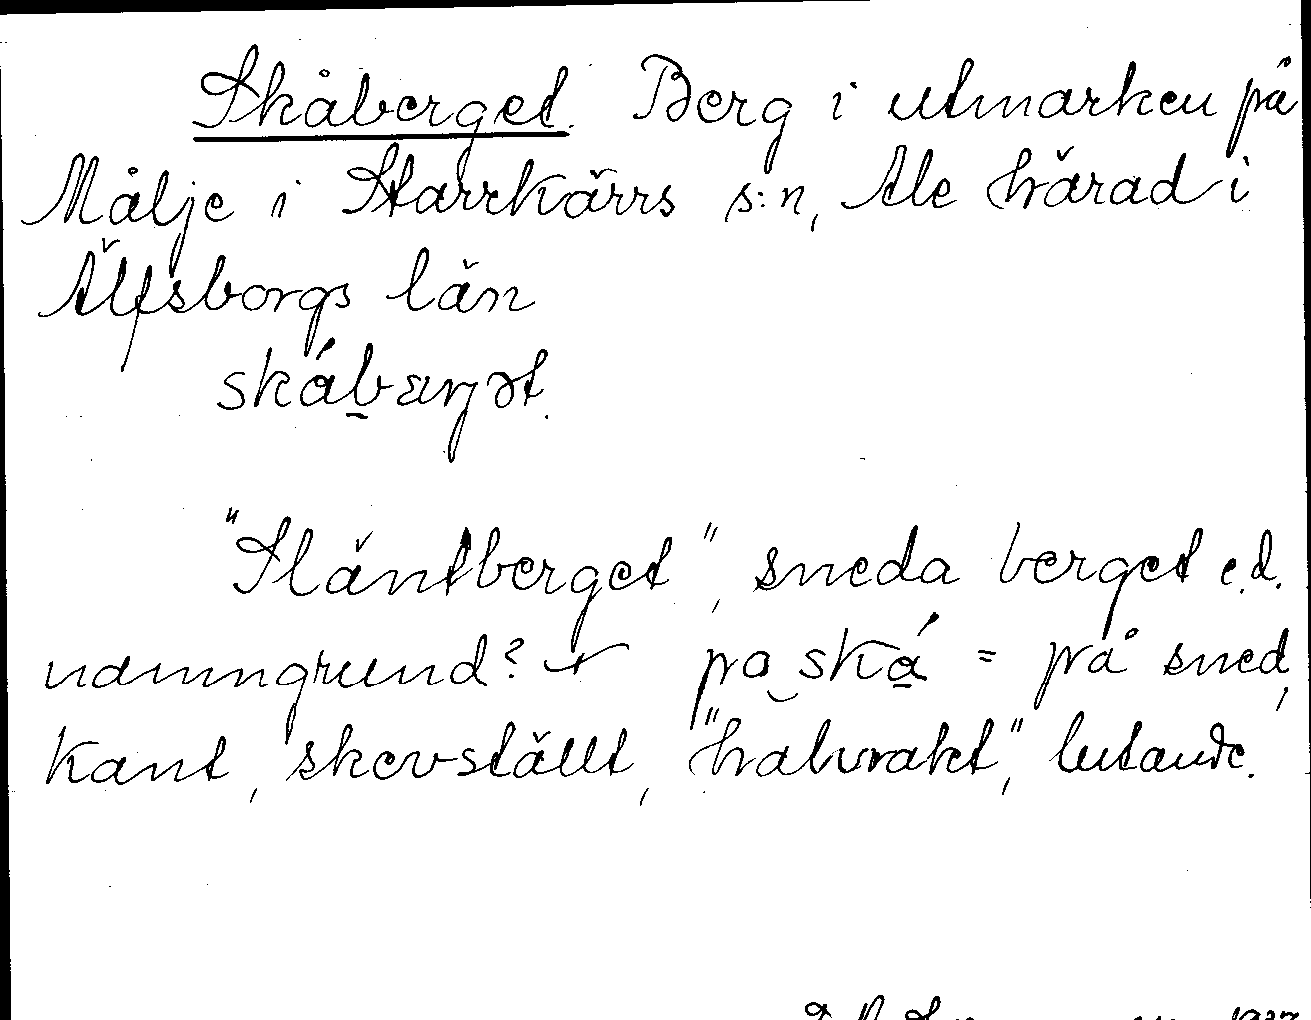 Skåberget. Berg i utmarken på
Målje i Starrkärrs s:n, Ale härad i
Älfsborgs län
skábærjət.
"Släntberget", sneda berget e.d.
namngrund? pa ská = på sned,
kant, skevställt, "halvrakt", lutande.